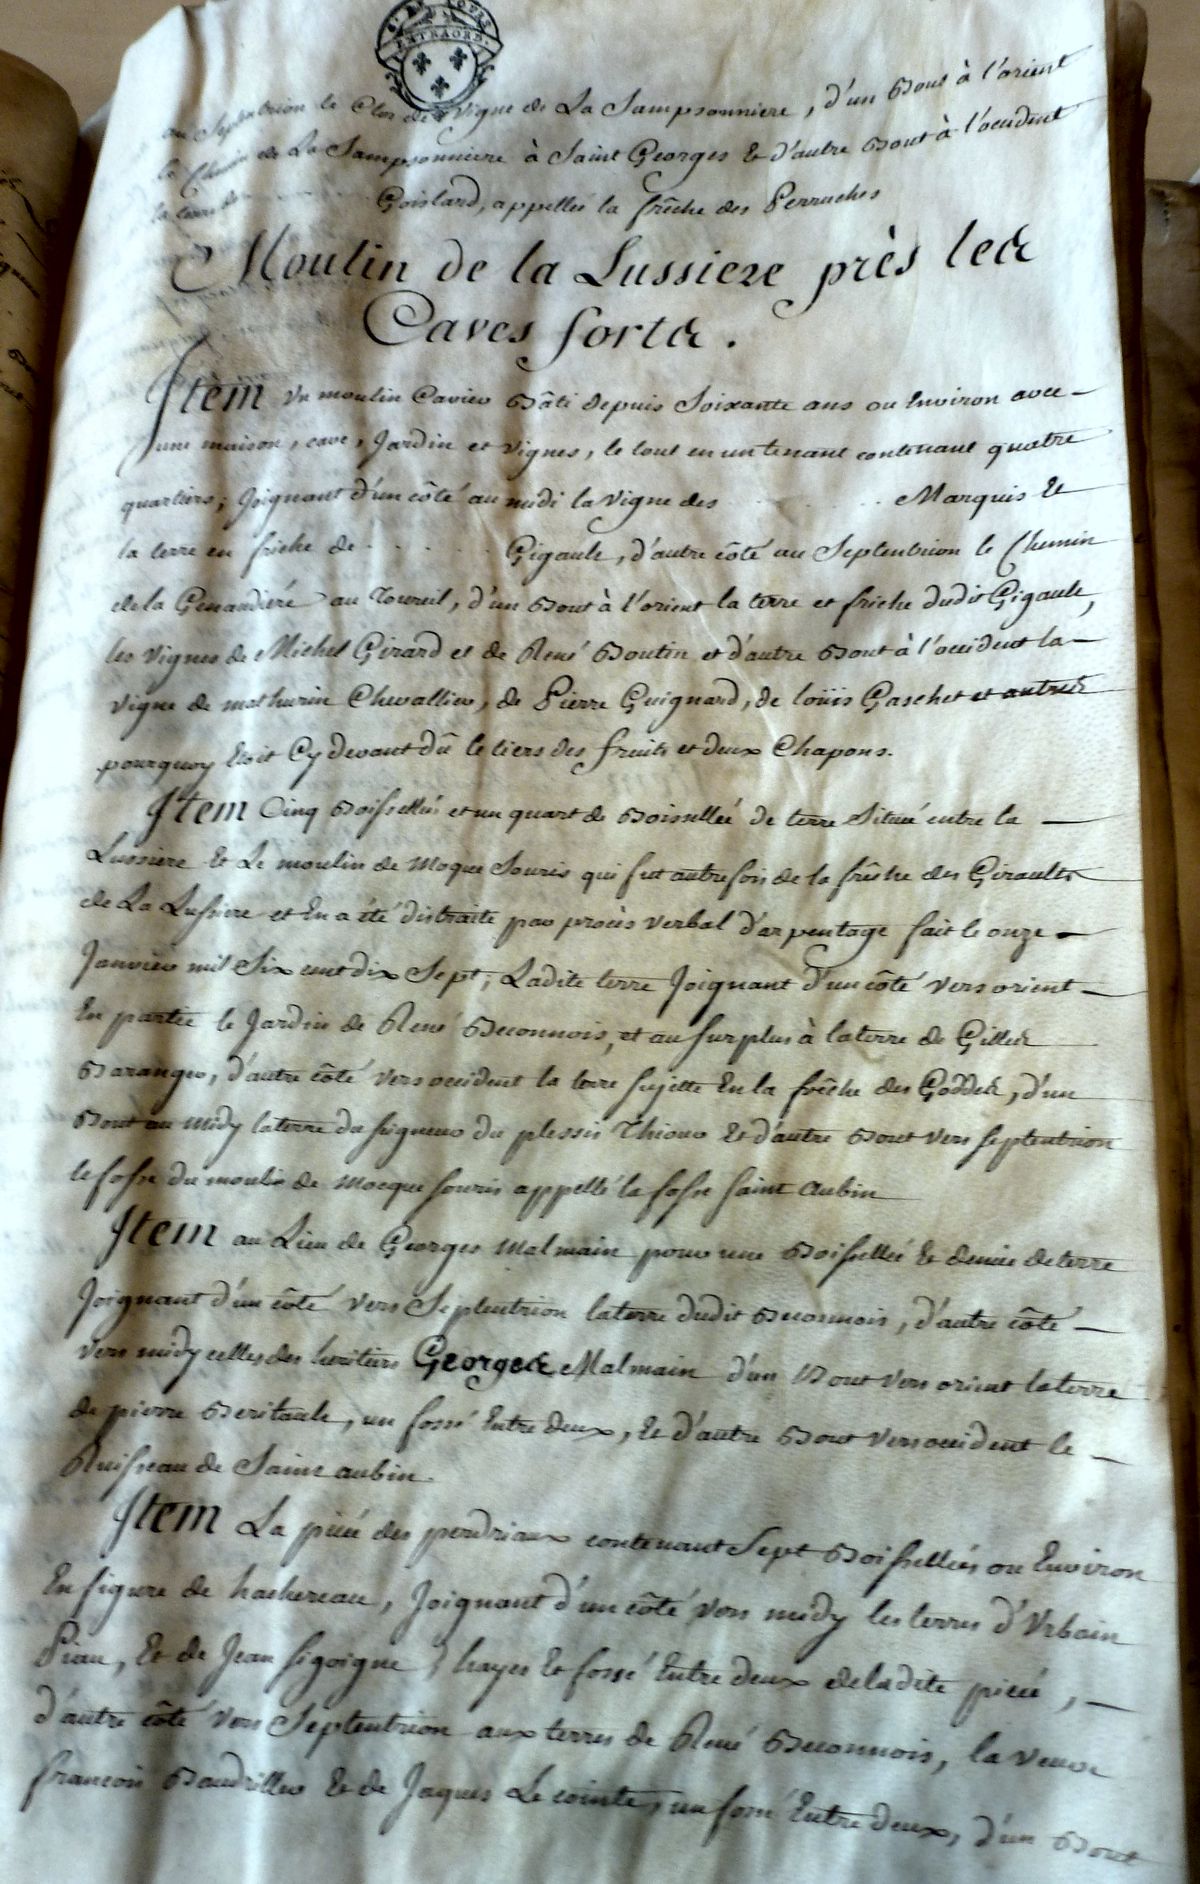 EXTRAORD.
au Septentrion le Clos de Vigne de La Sampsonniere, d'un Bout à l'orient
le Chemin de La Sampsonniere à Saint Georges Et d'autre Bout à l'occident
la terre de . . . . . . Goislard, appellée la frêche des Perruches
Moulin de la Lussiere près les
Caves fortes.
Item un moulin Cavier Bâti depuis Soixante ans ou Environ avec
une maison, cave, Jardin et vignes, le tout en un tenant contenant quatre
quartiers; Joignant d'un côté au midi la vigne des . . . . . Marquis Et
la terre en friche de . . . . . . Gigault, d'autre côté au Septentrion le Chemin
de la Genaudiere au Toureil, d'un Bout à l'orient la terre et friche dudit Gigault,
les vignes de Michel Girard et de René Boutin et d'autre Bout à l'occident la
vigne de mathurin Chevallier, de Pierre Guignard, de loüis Gaschet et autres
pourquoy Etoit Cy devant dû le tiers des fruits et deux Chapons.
Item Cinq Boissellées et un quart de Boissellée de terre Située entre la
Lussiere Et Le moulin de Moque Souris qui fut autrefois de la frêche des Giraults
de La Lussiere et En a été distraite par procès verbal d'arpentage fait le onze
Janvier mil Six cent dix Sept, Ladite terre Joignant d'un côté vers orient
En partie le Jardin de René Beconnois, et au surplus à la terre de Gilles
Baranger, d'autre côté vers occident la terre sujette En la frêche des Goddes, d'un
Bout au midy la terre du seigneur du plessis Thiour Et d'autre Bout vers septentrion
le fosse du moulin de Mocque souris appellé la fosse saint Aubin
Item au Lieu de Georges Malmain pour une Boissellée Et demie de terre
Joignant d'un côté vers Septentrion la terre dudit Beconnois, d'autre côté
vers midy celles des heritiers Georges Malmain d'un Bout vers orient la terre
de pierre Beritault, un fossé Entre deux, Et d'autre Bout vers occident le
Ruisseau de Saint aubin.
Item La pièce des perdriaux contenant Sept Boissellées ou Environ
En figure de hachereau, Joignant d'un côté vers midy les terres d'Urbain
Piau, Et de Jean sigoigne, hayes Et fossé Entre deux de ladite pièce,
d'autre côté vers Septentrion aux terres de René Beconnois, la veuve
francois Baudriller Et de Jaques Le cointe, un fossé Entre deux, d'un Bout